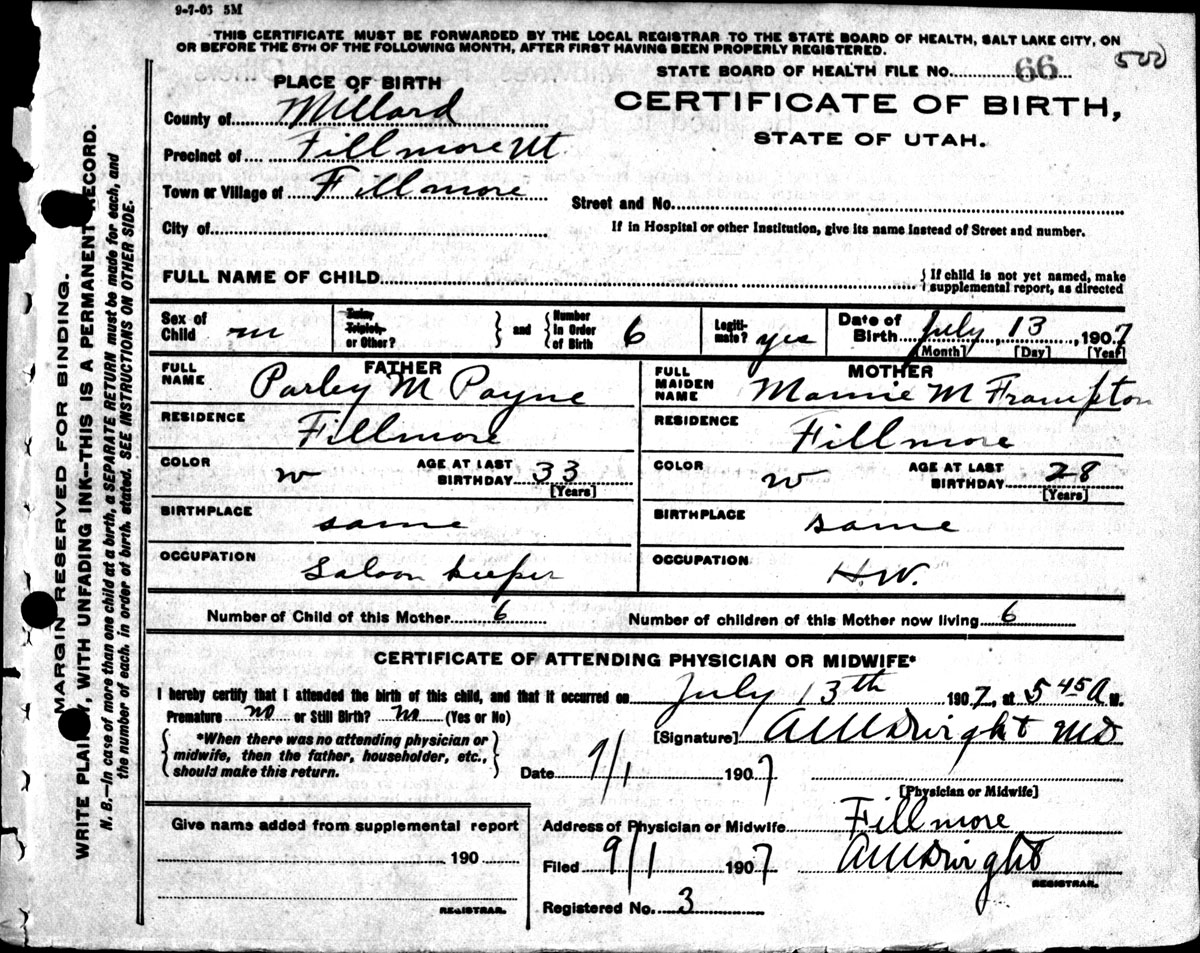 9-7-05 5M
THIS CERTIFICATE MUST BE FORWARDED BY THE LOCAL REGISTRAR TO THE STATE BOARD OF HEALTH, SALT LAKE CITY, ON
OR BEFORE THE 5TH OF THE FOLLOWING MONTH, AFTER FIRST HAVING BEEN PROPERLY REGISTERED.
STATE BOARD OF HEALTH FILE NO. 66
500
CERTIFICATE OF BIRTH,
STATE OF UTAH.
PLACE OF BIRTH
County of Millard
Precinct of Fillmore Ut
Town or Village of Fillmore
City of
Street and No.
If in Hospital or other Institution, give its name instead of Street and number.
FULL NAME OF CHILD
{ If child is not yet named, make
supplemental report, as directed
Sex of Child m
Twin, Triplet, or Other? } and { Number in Order of Birth 6
Legiti-mate? yes
Date of Birth July, 13, 1907
[Month] [Day] [Year]
FATHER
FULL NAME Parley M Payne
RESIDENCE Fillmore
COLOR w AGE AT LAST BIRTHDAY 33
[Years]
BIRTHPLACE same
OCCUPATION Saloon keeper
MOTHER
FULL MAIDEN NAME Mamie M Frampton
RESIDENCE Fillmore
COLOR w AGE AT LAST BIRTHDAY 28
[Years]
BIRTHPLACE same
OCCUPATION H.W.
Number of Child of this Mother 6 Number of children of this Mother now living 6
CERTIFICATE OF ATTENDING PHYSICIAN OR MIDWIFE*
I hereby certify that I attended the birth of this child, and that it occurred on July 13th 1907, at 5 45 A M.
Premature no or Still Birth? no (Yes or No)
{ *When there was no attending physician or
midwife, then the father, householder, etc.,
should make this return. }
[Signature] MD
Date 9/1 1907
[Physician or Midwife]
Give name added from supplemental report
190
REGISTRAR.
Address of Physician or Midwife Fillmore
Filed 9/1 1907
REGISTRAR.
Registered No. 3
MARGIN RESERVED FOR BINDING.
WRITE PLAINLY, WITH UNFADING INK--THIS IS A PERMANENT RECORD.
N. B.--In case of more than one child at a birth, a SEPARATE RETURN must be made for each, and
the number of each, in order of birth, stated. SEE INSTRUCTIONS ON OTHER SIDE.